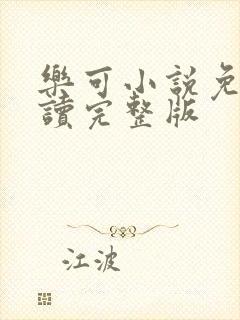 樂可小說免
讀完整版
江波